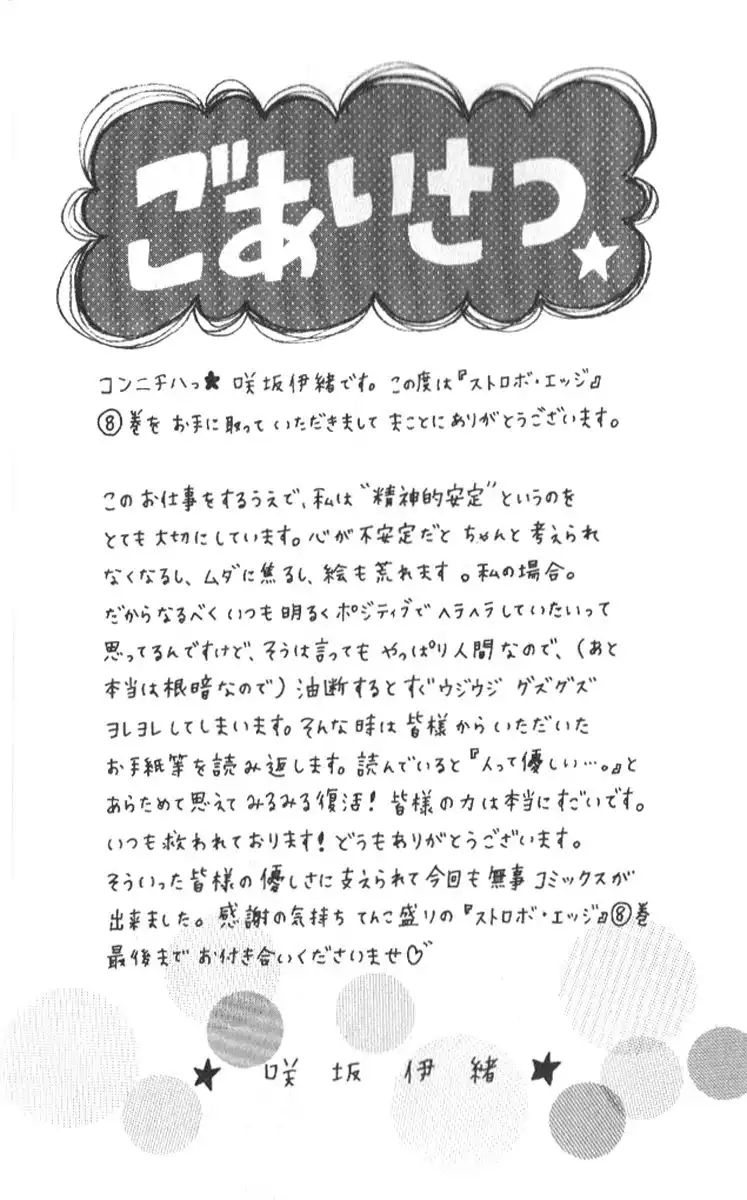 ごあいさつ★
コンニチハっ★ 咲坂伊緒です。この度は『ストロボ・エッジ』
⑧巻を お手に取って いただきまして まことにありがとうございます。
このお仕事をするうえで、私は“精神的安定”というのを
とても大切にしています。心が不安定だと ちゃんと考えられ
なくなるし、ムダに焦るし、絵も荒れます。私の場合。
だからなるべく いつも明るく ポジティブで ヘラヘラしていたいって
思ってるんですけど、そうは言っても やっぱり人間なので、(あと
本当は根暗なので) 油断すると すぐウジウジ グズグズ
ヨレヨレしてしまいます。そんな時は 皆様からいただいた
お手紙等を読み返します。読んでいると『人って優しい…。』と
あらためて思えて みるみる復活! 皆様の力は本当にすごいです。
いつも救われております! どうもありがとうございます。
そういった皆様の優しさに支えられて今回も無事コミックスが
出来ました。感謝の気持ち てんこ盛りの『ストロボ・エッジ』⑧巻
最後まで お付き合いくださいませ♡
★ 咲坂伊緒 ★